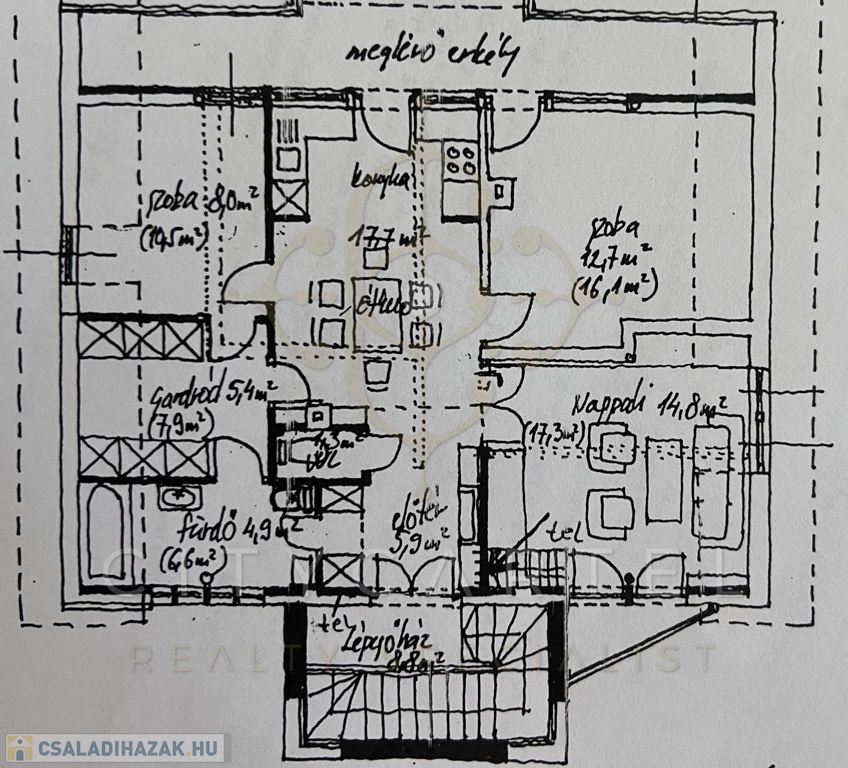 meglévő erkély
szoba 8,0m²
(10,5m²)
konyha
17,7 m²
étkező
szoba
12,7 m²
(16,1m²)
Gardrób 5,4m²
(7,9m²)
Nappali 14,8m²
(17,3m²)
1,3m²
fürdő 4,9m²
(6,6m²)
előtér
5,9m²
tel
tel
Lépcsőház
8,8m²
CITYCARTEL
REALTY SPECIALIST
CSALADIHAZAK.HU